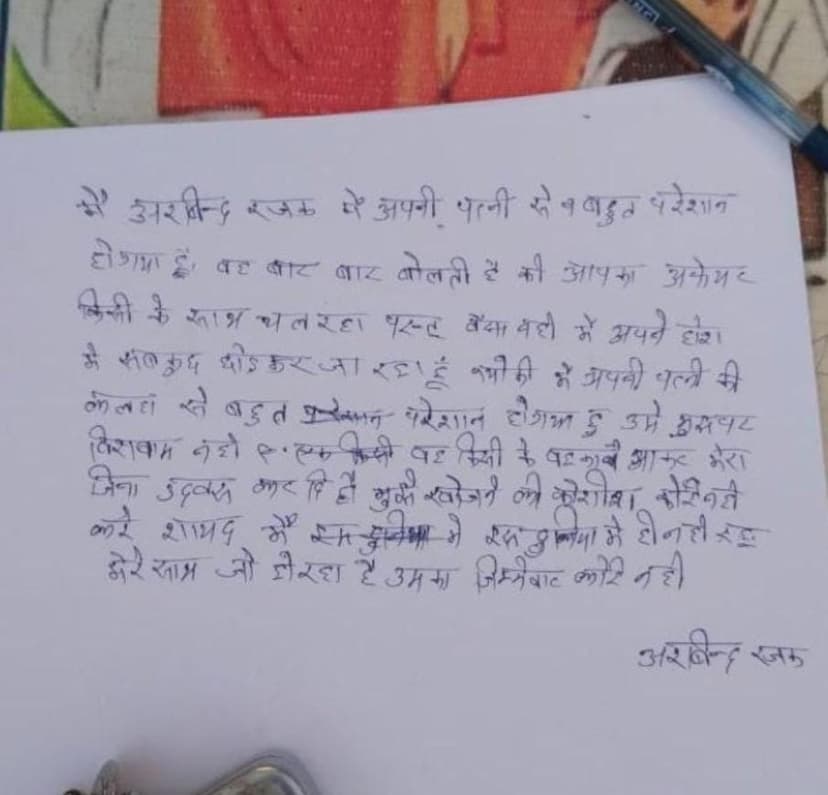 मै अरबिन्द रजक मे अपनी पत्नी से बहुत परेशान
होगया हूँ, वह बार बार बोलती है की आपका अफेयर
किसी के साथ चल रहा परन्तु वैसा नही मे अपने होश
मे सबकुछ छोडकर जा रहा हूँ क्योकी मे अपनी पत्नी की
कलहा से बहुत परेशान होगया हु उसे मुझपर
विशवास नही वह किसी के बहकावे आकर मेरा
जिना कर दि है मुझे खोजने की कोशीश कोई नही
करे शायद मैं इस दुनिया मे ही नही रहू
मेरे साथ जो हो रहा है उसका जिम्मेबार कोई नही
अरबिन्द रजक